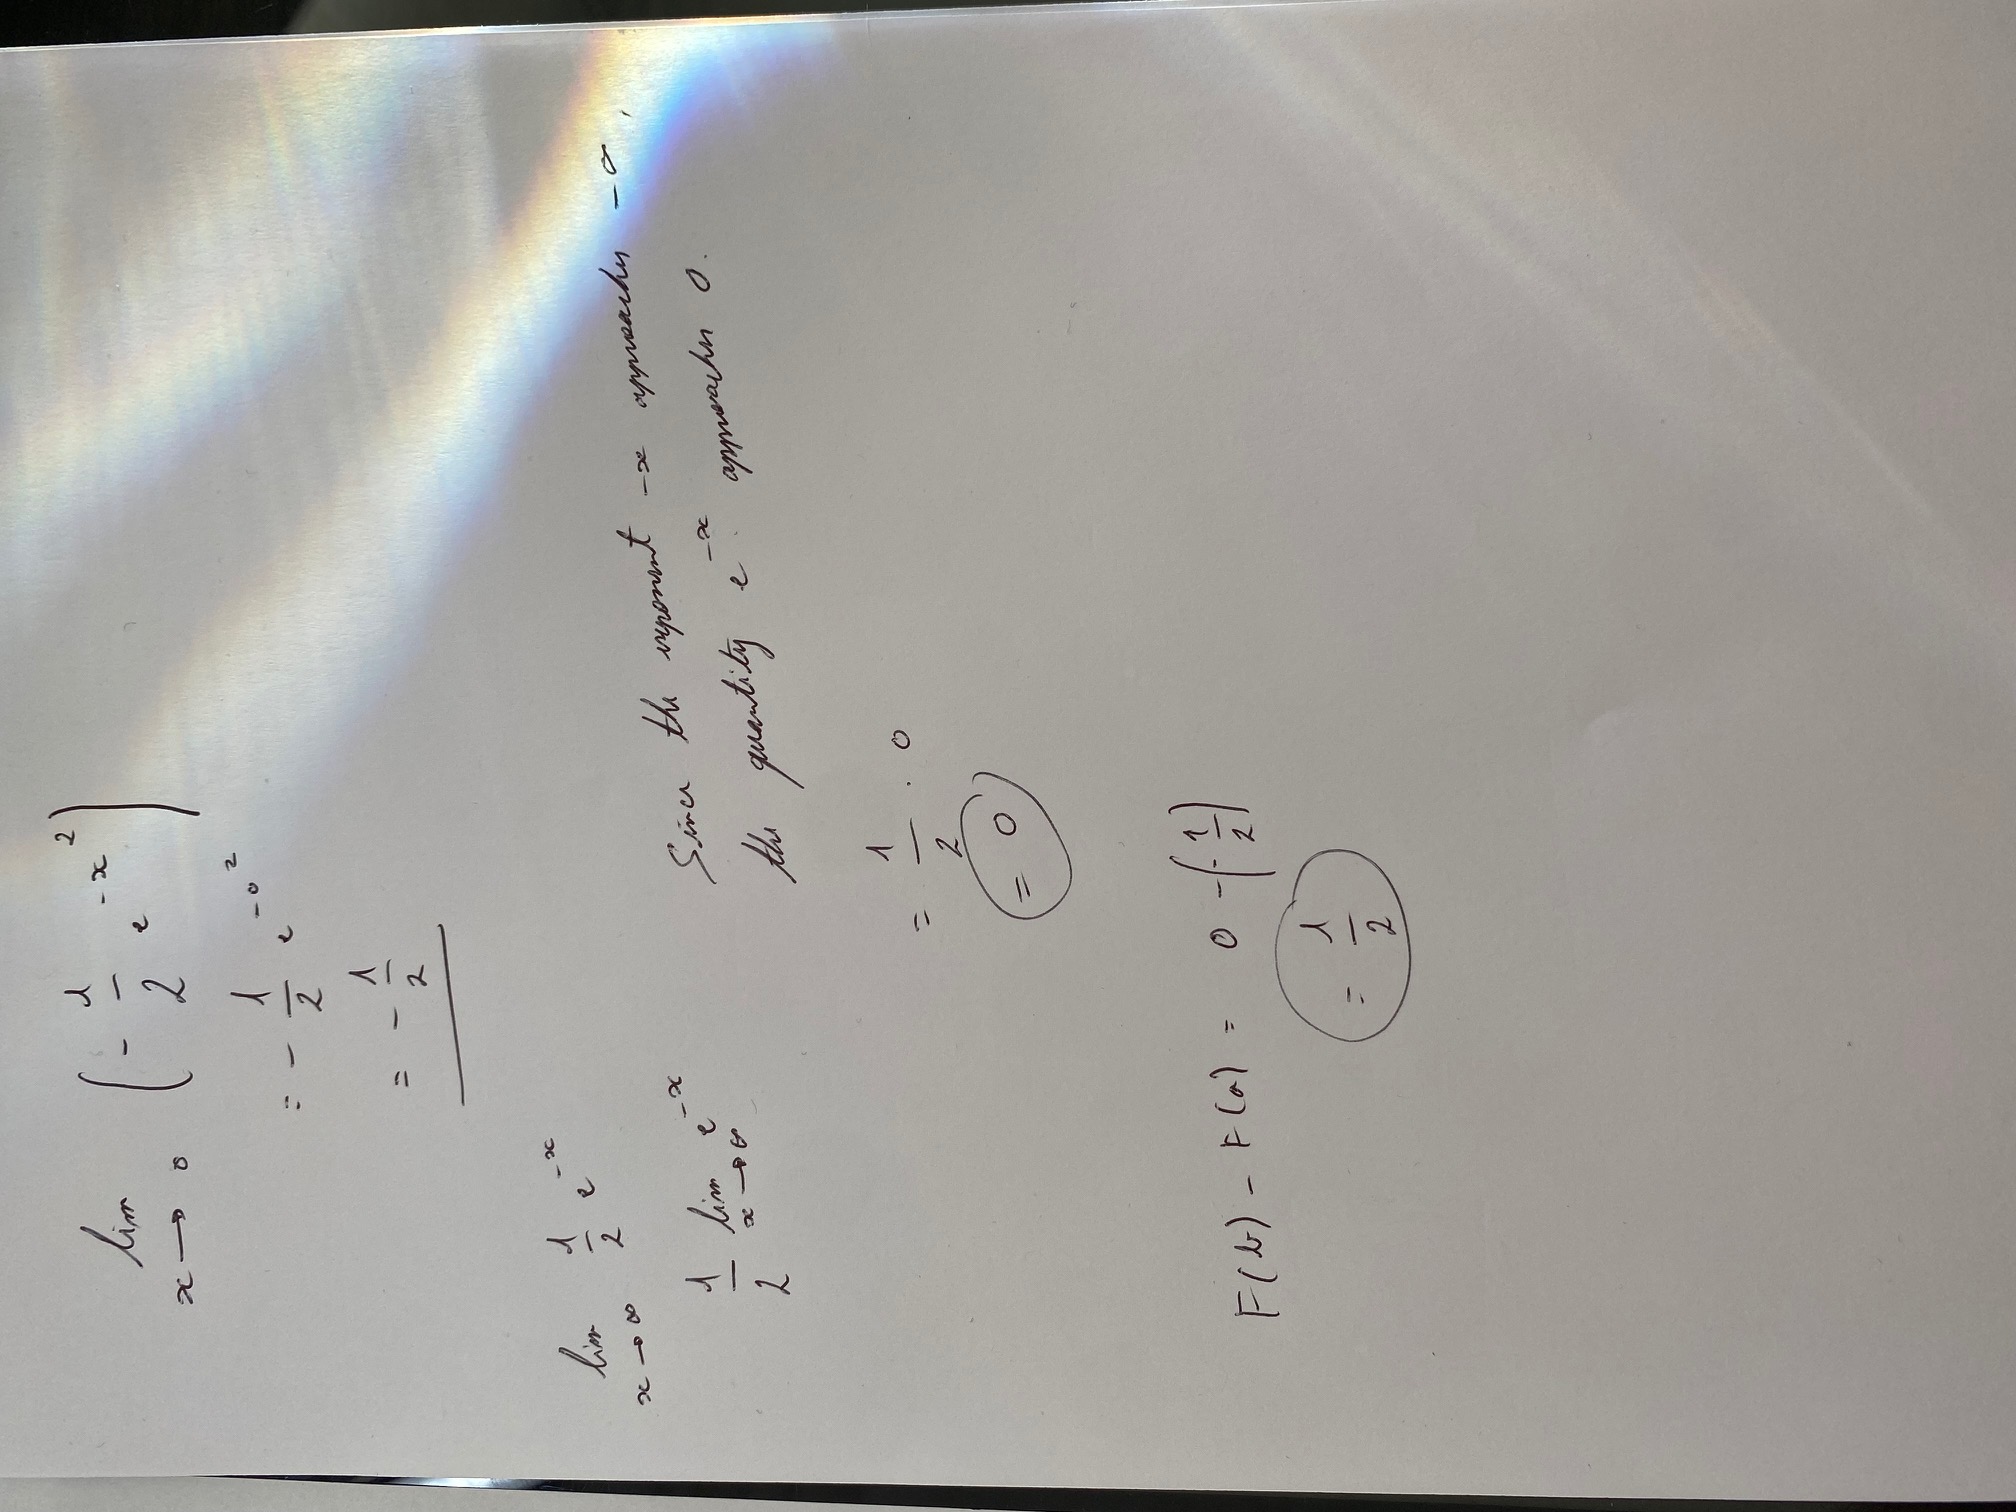 lim x→0 (- 1/2 e^-x^2)
= - 1/2 e^-0^2
= - 1/2
lim x→∞ 1/2 e^-x
1/2 lim x→∞ e^-x
Since the exponent -x approaches -∞,
the quantity e^-x approaches 0.
= 1/2 · 0
= 0
F(b) - F(a) = 0 - (- 1/2)
= 1/2